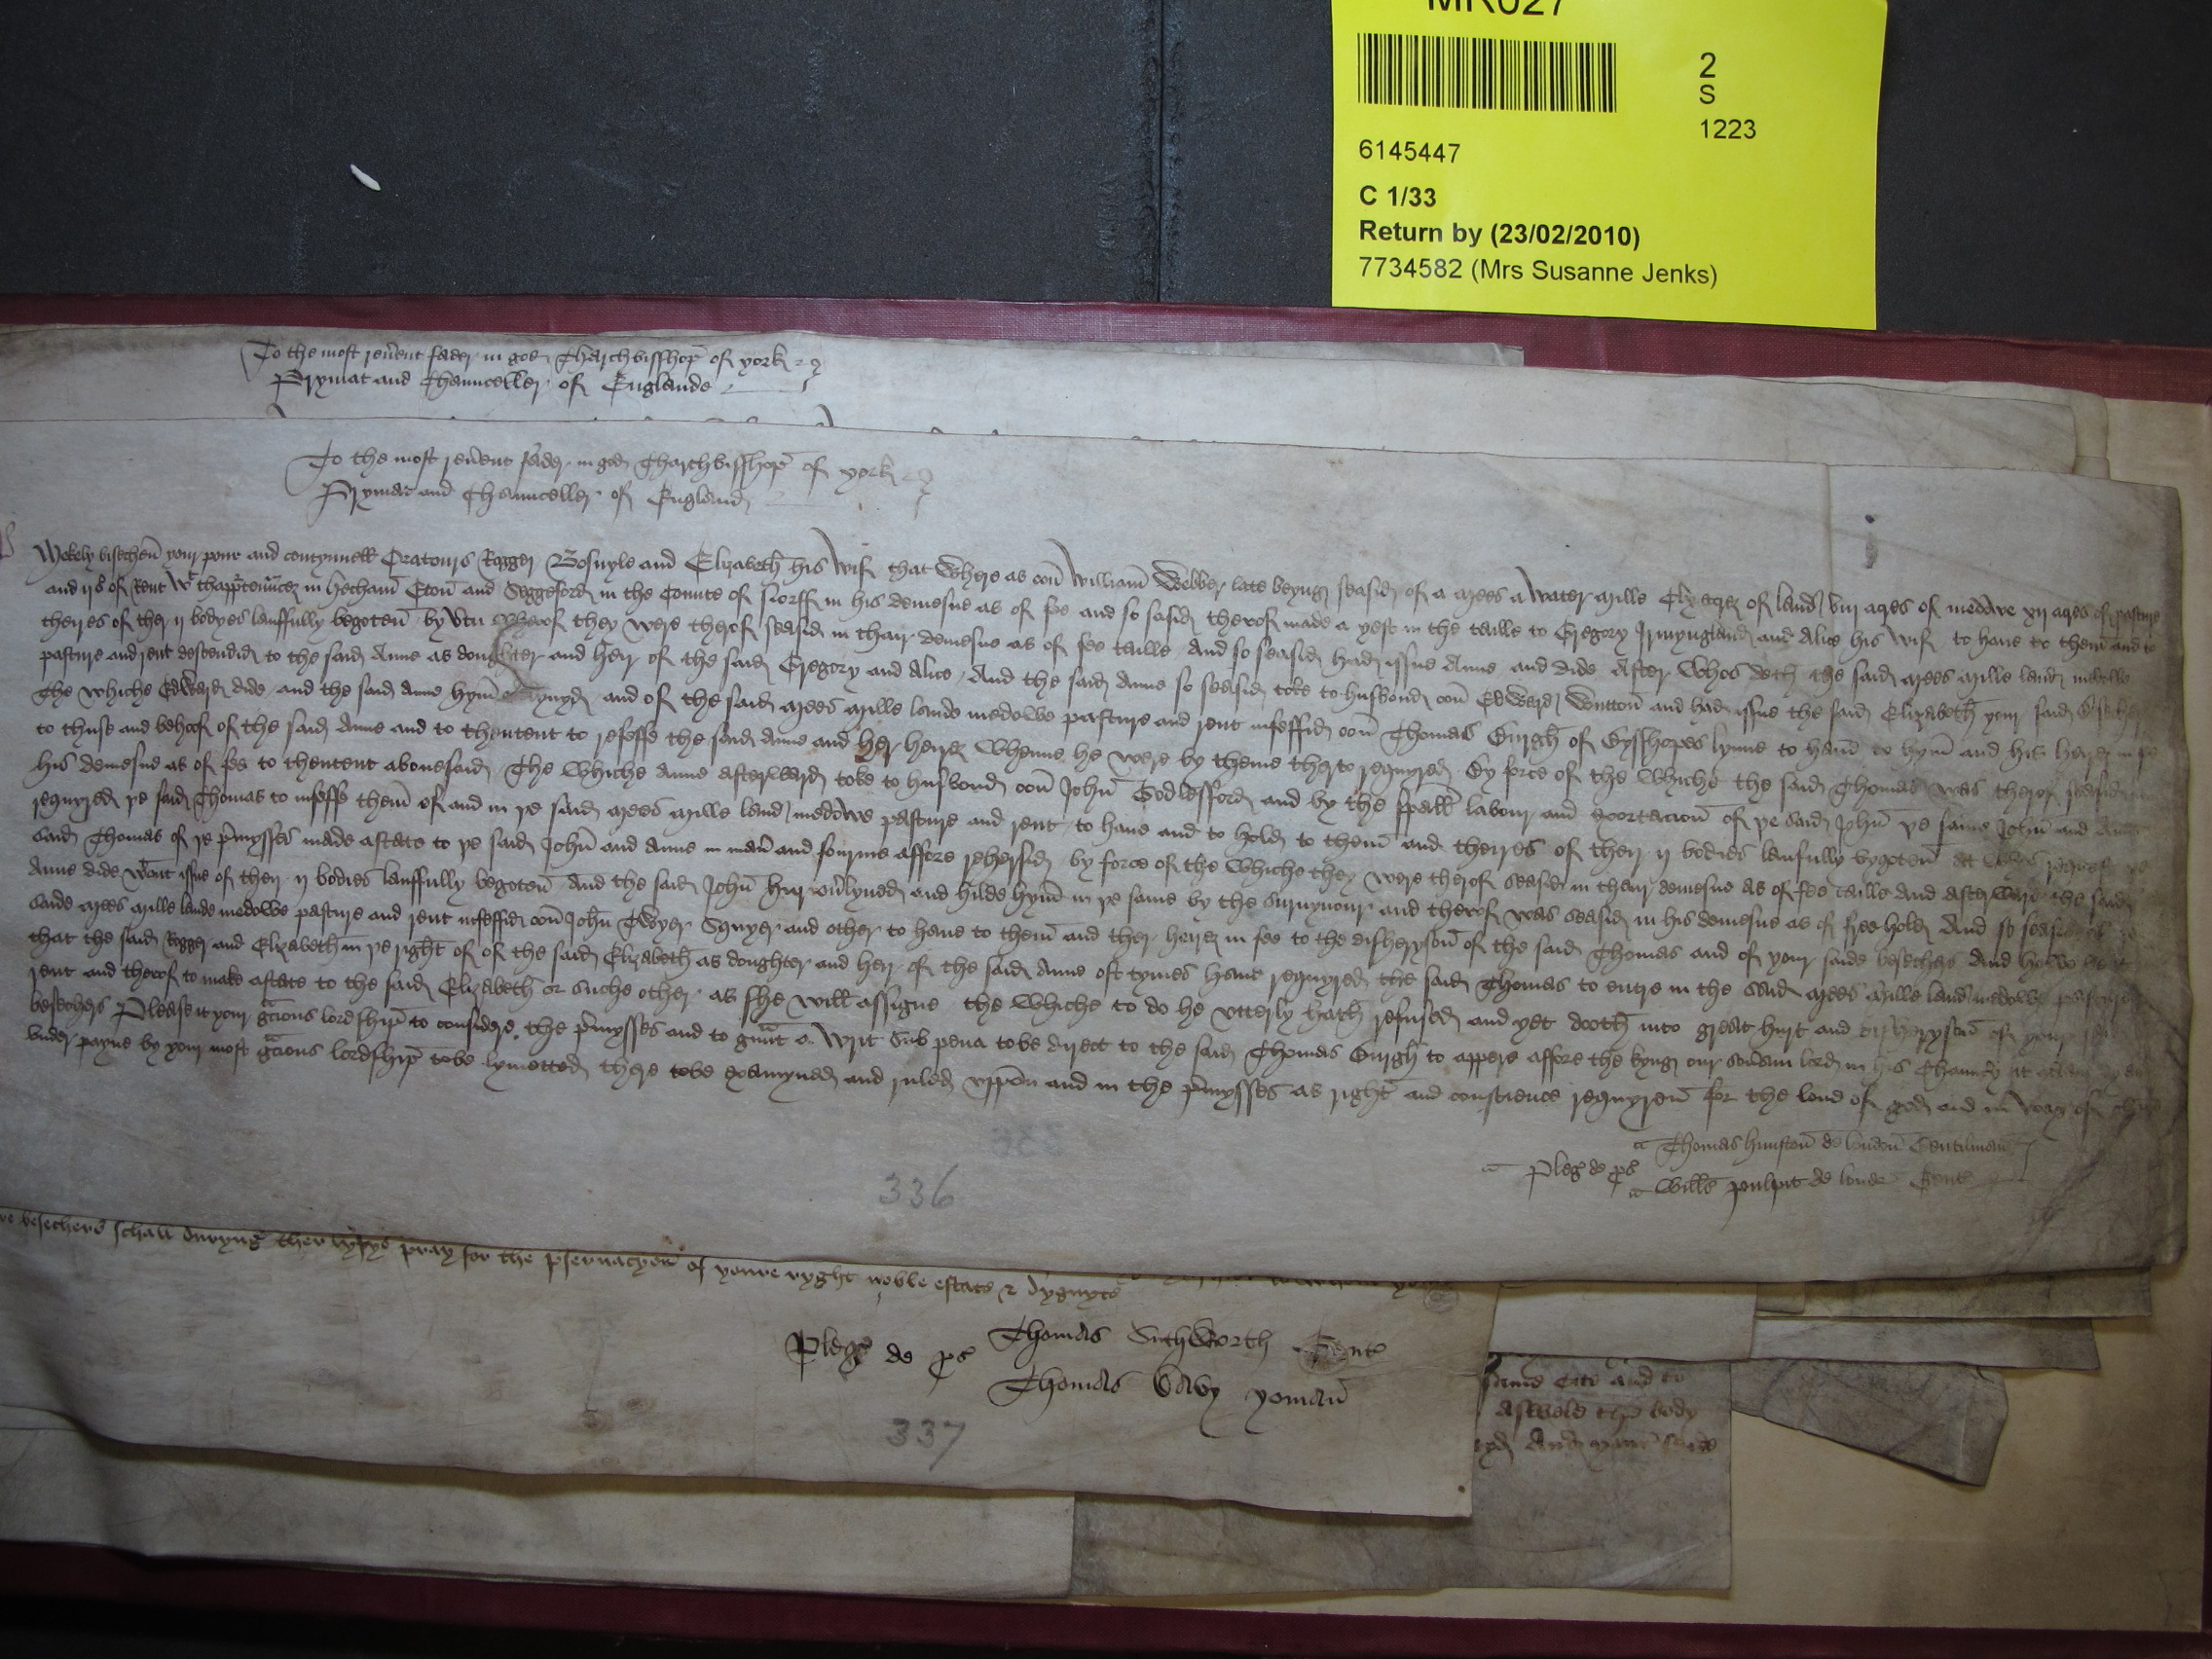 MR027
2
S
1223
6145447
C 1/33
Return by (23/02/2010)
7734582 (Mrs Susanne Jenks)
To the most reu'ent fader in god Tharchbisshop of york &c
Prymat and Chaunceller of Englande
To the most reu'ent fader in god Tharchbisshop of york &c
Prymat and Chaunceller of England
Mekely bisechen your pour and contynuell Oratours Rogger Bosvyle and Elizabeth his wif that where as oon William Webber late beyng seasid of a mees a water mille acrez of land viij acres of medowe xij acres of pasture
and ijs of Rent wt thapp'tenncez in Hecham Eton and in the Counte of Norff in his demesne as of fee and so seasid therof made a yeft in the taille to Gregory Irmyngland and Alice his wif to haue to them and to
theires of ther ij bodyes lauffully begoten by v'tu wherof they were therof seasid in thair demesne as of fee taille And so seasid had issue Anne and dide After whos deth the said mees mille land medowe
pasture and rent descendid to the said Anne as doughter and heir of the said Gregory and Alice And the said Anne so seasid toke to husbond oon Edward Wutton and had issue the said Elizabeth your said
The whiche Edward dide and the said Anne hym and of the said mees mille lande medowe pasture and rent infeffid oon Thomas Burgh of Bysshopes lynne to haue to hym and his heirez in fe
to thuse and behoof of the said Anne and to thentent to refeffe the said Anne and her heirez whenne he were by theme therto requyred By force of the whiche the said Thomas was therof seasid in
his demesne as of fee to thentent abouesaid The whiche Anne afterward toke to husbond oon John Godlesford and by the sp'iall labour and exortacion of ye said John ye same John and Anne
requyred ye said Thomas to infeffe them of and in ye said mees mille land medowe pasture and rent to haue and to hold to them and theires of ther ij bodies laufully bygoten At whos request ye
said Thomas of ye p'mysses made astate to ye said John and Anne in man' and fourme affore rehersid by force of the whiche they were therof seasid in thair demesne as of fee taille And afterward the said
Anne dide wtout issue of ther ij bodies lauffully begoten And the said John her ou'lyued and hilde hym in ye same by the suruyuour and therof was seasid in his demesne as of free hold And so seasid of ye
saide mees mille lande medowe pasture and rent infeffid oon John Twyer Squyer and other to haue to them and ther heirez in fee to the disheryson of the said Thomas and of your saide besechers And howe be it
that the said Rogger and Elizabeth in ye right of of the said Elizabeth as doughter and heir of the said Anne oft tymes haue requyred the said Thomas to entre in the said mees mille land medowe pasture
rent and therof to make astate to the said Elizabeth or suche other as she will assigne the whiche to do he vtterly hath refused and yet dooth into great hurt and disheryson of your
besechers Please it your gracious lordship to considere the p'mysses and to graunt a writ Sub pena tobe direct to the said Thomas Burgh to appere affore the kyng our sou'ain lord in his Chauncery at a
vnder payne by your most gracious lordship tobe lymetted there tobe examyned and ruled vppon and in the p'mysses as right and conscience requyren for the loue of god and in way of
Pleg' de ps'
Thomas Hunston de london Gentilman
Will's Poulpit de london Gent'
336
besechers schall duryng ther lyfys pray for the p'seruacyon of youre ryght noble estate & dygnyte
Pleg' de ps'
Thomas Suthworth Gent'
Thomas Davy yoman
337
same and to
body